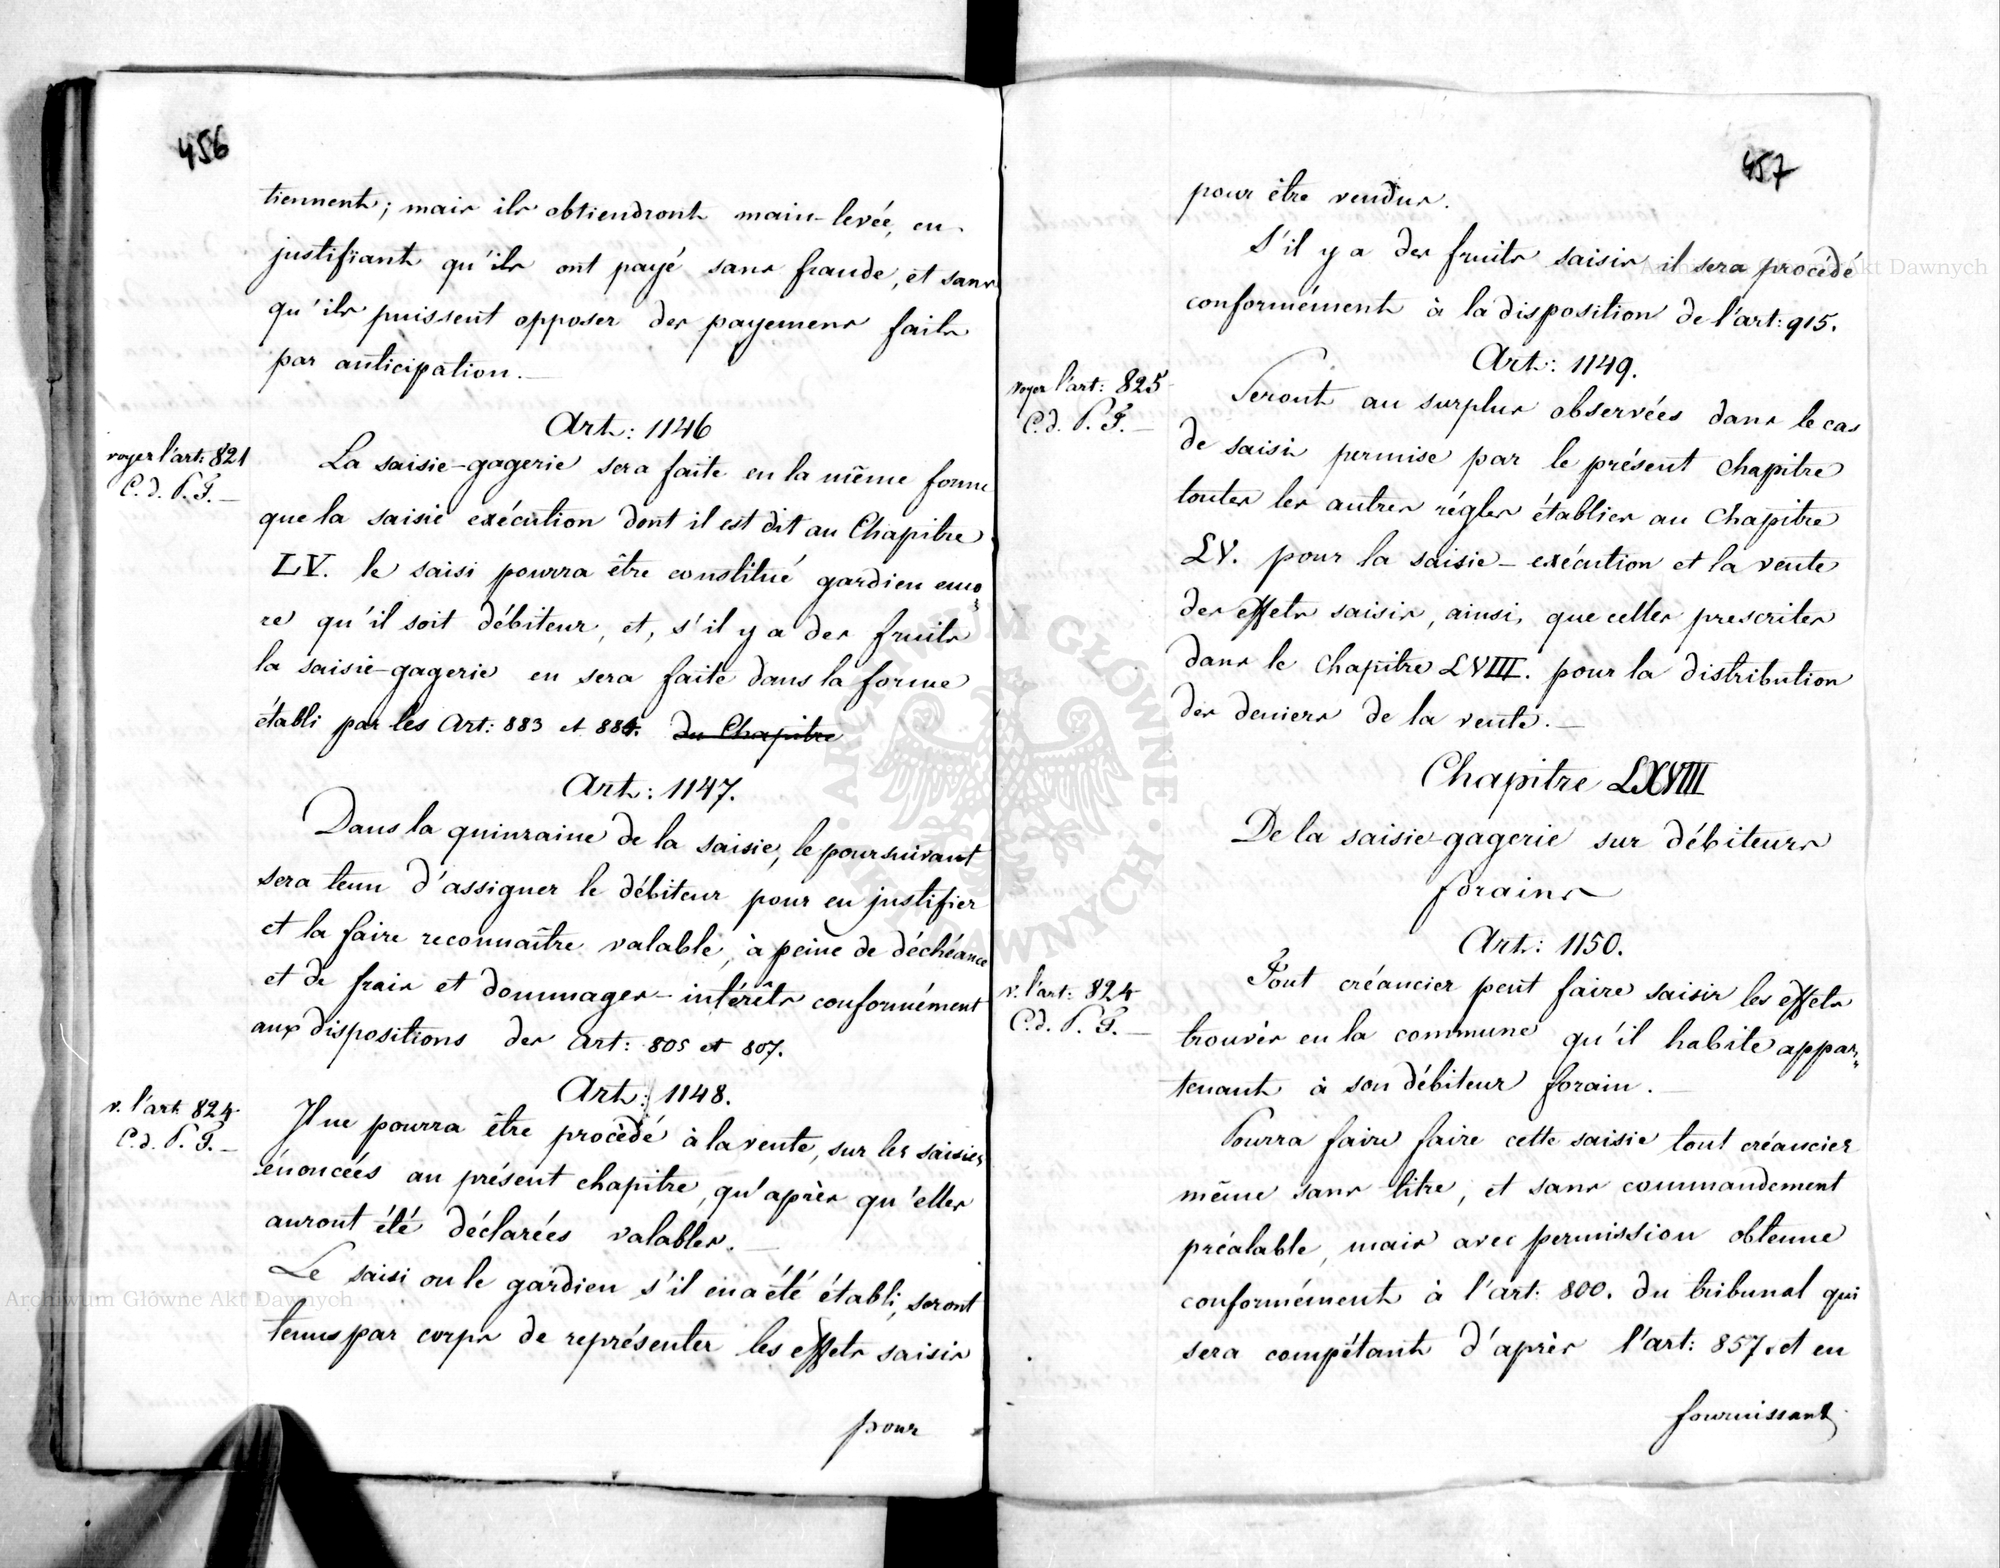 456
tiennent; mais ils obtiendront main-levée, en
justifiant qu'ils ont payé sans fraude, et sans
qu'ils puissent opposer des payemens faits
par anticipation.
Art: 1146
voyez l'art: 821
C. d. P. F.
La saisie-gagerie sera faite en la même forme
que la saisie exécution dont il est dit au Chapitre
LV. le saisi pourra être constitué gardien enco=
re qu'il soit débiteur, et, s'il y a des fruits
la saisie-gagerie en sera faite dans la forme
établi par les Art: 883 et 884. du Chapitre
Art: 1147.
Dans la quinzaine de la saisie, le poursuivant
sera tenu d'assigner le débiteur pour en justifier
et la faire reconnaître valable, à peine de déchéance
et de frais et dommages-intérêts conformément
aux dispositions des Art: 805 et 807.
Art: 1148.
v. l'art 824.
C. d. P. F.
Il ne pourra être procédé à la vente, sur les saisies
énoncées au présent chapitre, qu'après qu'elles
auront été déclarées valables.
Le saisi ou le gardien s'il en a été établi, seront
tenus par corps de représenter les effets saisis
pour
457
pour être vendus.
S'il y a des fruits saisis il sera procédé
conformément à la disposition de l'art: 915.
Art: 1149.
voyez l'art: 825
C. d. P. F.
Seront au surplus observées dans le cas
de saisie permise par le présent chapitre
toutes les autres régles établies au Chapitre
LV. pour la saisie-exécution et la vente
des effets saisis, ainsi, que celles prescrites
dans le chapitre LVIII. pour la distribution
des deniers de la vente.
Chapitre LXVIII
De la saisie-gagerie sur débiteurs
forains
Art: 1150.
v. l'art: 824
C. d. P. F.
Tout créancier peut faire saisir les effets
trouvés en la commune qu'il habite appar=
tenant à son débiteur forain.
Pourra faire faire cette saisie tout créancier
même sans titre, et sans commandement
préalable, mais avec permission obtenue
conformément à l'art: 800. du tribunal qui
sera compétant d'après l'art: 857. et en
fournissant
Archiwum Główne Akt Dawnych
Archiwum Główne Akt Dawnych
ARCHIWUM GŁÓWNE AKT DAWNYCH